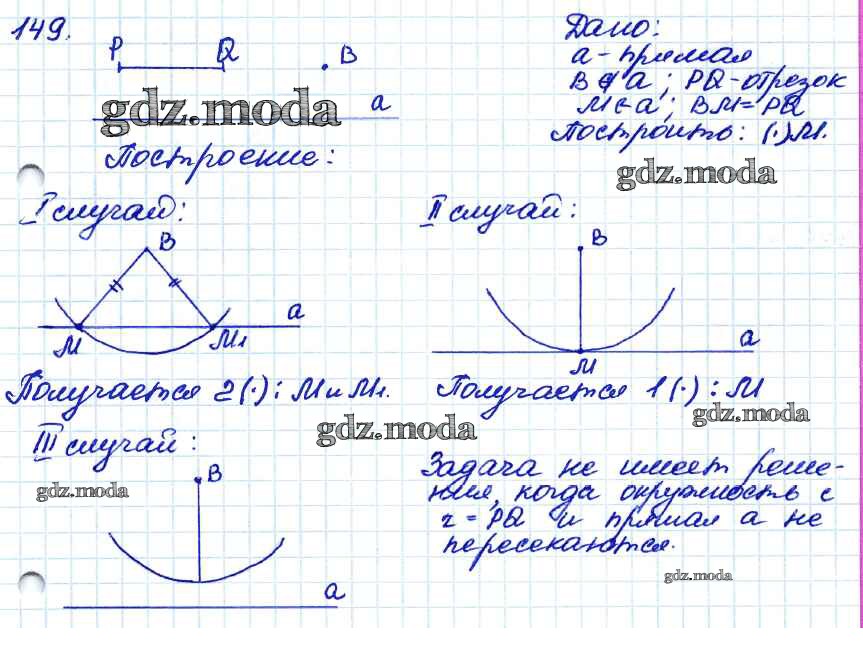 149.
P Q B
a
gdz.moda
Дано:
a - прямая
B ∉ a ; PQ - отрезок
M ∈ a ; BM = PQ
Построить: (·)M.
gdz.moda
Построение:
I случай:
B
a
M M₁
Получается 2(·): M и M₁.
II случай:
B
a
M
Получается 1(·): M
gdz.moda
gdz.moda
III случай:
B
gdz.moda
a
Задача не имеет реше-
ния, когда окружность с
r = PQ и прямая a не
пересекаются.
gdz.moda